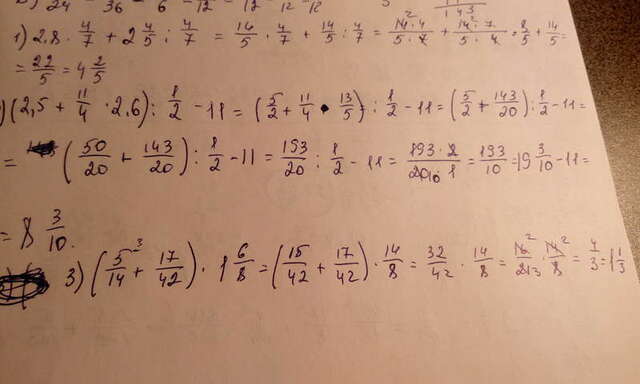 24 36 6 12 12 12
1) 2,8 · 4/7 + 2 4/5 : 4/7 = 14/5 · 4/7 + 14/5 : 4/7 = 14·4/5·7 + 14·7/5·4 = 8/5 + 14/5 =
= 22/5 = 4 2/5
) (2,5 + 11/4 · 2,6) : 1/2 - 11 = (5/2 + 11/4 · 13/5) : 1/2 - 11 = (5/2 + 143/20) : 1/2 - 11 =
= (50/20 + 143/20) : 1/2 - 11 = 193/20 : 1/2 - 11 = 193·2/20 10·1 = 193/10 = 19 3/10 - 11 =
= 8 3/10.
3) (5/14 3 + 17/42) · 1 6/8 = (15/42 + 17/42) · 14/8 = 32/42 · 14/8 = 16 2/21 3 · 14 2/8 = 4/3 = 1 1/3